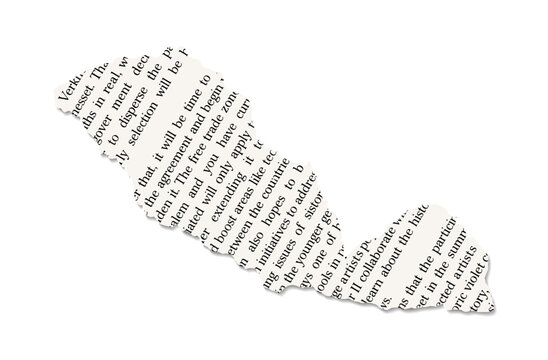 Verkh
nesset. Tha
ths in real, w
gover ment deci
to disperse the pa
ly selection will be h
that, it will be time to
the agreement and begin
den it. The free trade zon
alem and you have curr
iated will only apply t
er extending it to
d boost areas like tec
etween the countrie
n also hopes to b
initiatives to addre
ng issues of sistor
n the younger ge
ays one of
ools in p
ge artists p
r II collaborate w
earn about the histo
vs.
ns that the particip
eet in the summ
ected artists
oric violet c
tory,